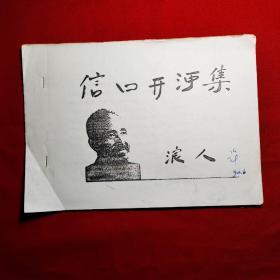 信口开河集
浪人